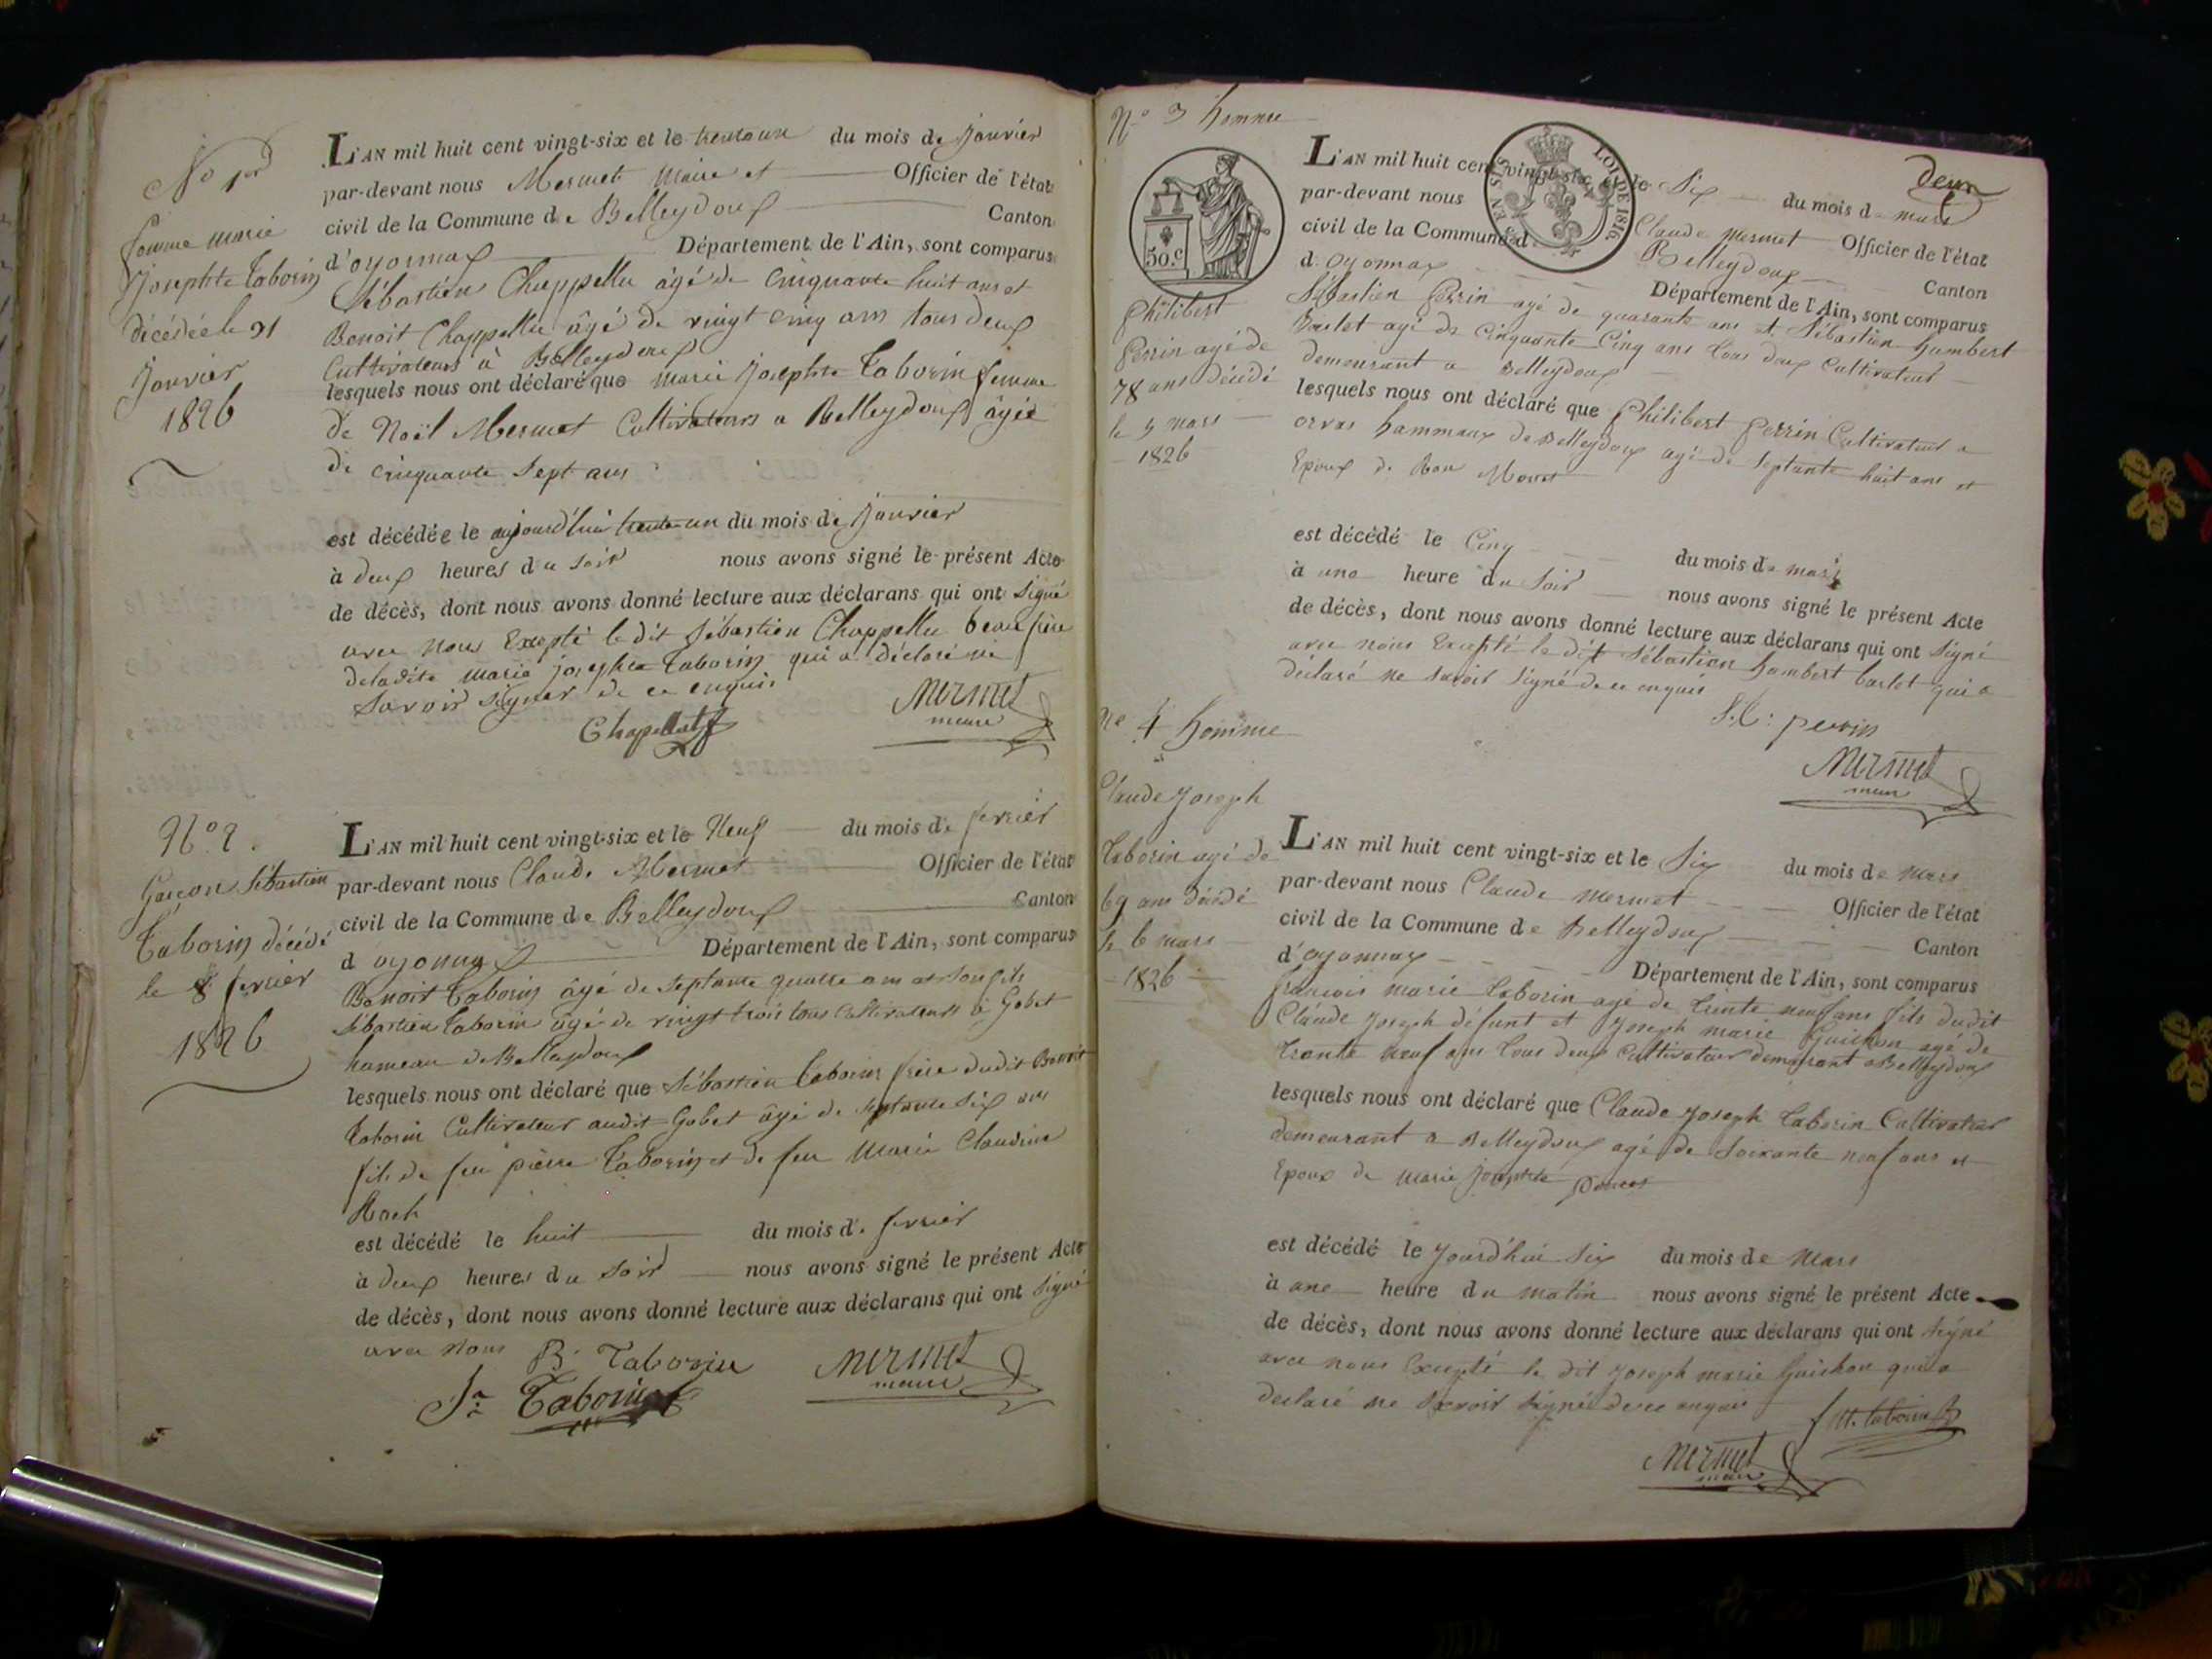 No 1er
femme marie
Josephte Taborin
décédée le 31
Janvier
1826
L'AN mil huit cent vingt-six et le trenteun du mois de Janvier
par-devant nous Mermet Maire et Officier de l'état
civil de la Commune de Belleydoux Canton
d'oyonnax Département de l'Ain, sont comparus
Sébastien Chappellu âgé de cinquante huit ans et
Benoit Chappellu âgé de vingt cinq ans tous deux
Cultivateurs à Belleydoux
lesquels nous ont déclaré que Marie Josephte Taborin femme
de Noël Mermet Cultivateurs a Belleydoux âgée
de cinquante sept ans
est décédée le aujourd'hui trente un du mois de Janvier
à deux heures du soir nous avons signé le présent Acte
de décès, dont nous avons donné lecture aux déclarans qui ont Signé
avec nous Excepté le dit Sébastien Chappellu beau frère
deladite marie josephte Taborin qui a déclaré ne
savoir signer de ce enquis
Mermet
maire
No 2.
Garçon Sébastien
Taborin décédé
le 8 fevrier
1826
L'AN mil huit cent vingt-six et le Neuf du mois de fevrier
par-devant nous Claude Mermet Officier de l'état
civil de la Commune de Belleydoux Canton
d oyonnax Département de l'Ain, sont comparus
Benoit Taborin âgé de septante quatre ans et son fils
Sébastien Taborin âgé de vingt trois tous Cultivateurs à Gobet
hameau de Belleydoux
lesquels nous ont déclaré que Sébastien Taborin frère dudit Benoit
Taborin Cultivateur audit Gobet âgé de septante six ans
fils de feu pierre Taborin et de feu Marie Claudine
Roch
est décédé le huit du mois de fevrier
à deux heures du soir nous avons signé le présent Acte
de décès, dont nous avons donné lecture aux déclarans qui ont Signé
avec nous
B. Taborin
Taborin
Mermet
maire
No 3 homme
deux
50.c
LOI DE 1816.
Philibert
Perrin agé de
78 ans décédé
le 5 mars
1826
L'AN mil huit cent vingt-six et le Six du mois de mars
par-devant nous Claude Mermet Officier de l'état
civil de la Commune d Belleydoux Canton
d. Oyonnax Département de l'Ain, sont comparus
Sébastien Perrin agé de quarante ans et Sébastien humbert
Barlet agé de Cinquante Cinq ans tous deux Cultivateur
demeurant a Belleydoux
lesquels nous ont déclaré que Philibert Perrin Cultivateur a
orvas hammaux de Belleydoux agé de Septante huit ans et
Epoux de
est décédé le Cinq du mois de mars
à une heure du Soir nous avons signé le présent Acte
de décès, dont nous avons donné lecture aux déclarans qui ont Signé
avec nous Excepté le dit Sébastien humbert barlet qui a
déclaré ne savoir Signé de ce enquis
perrin
Mermet
maire
No 4 homme
Claude Joseph
Taborin agé de
69 ans décédé
le 6 mars
1826
L'AN mil huit cent vingt-six et le Six du mois de Mars
par-devant nous Claude Mermet Officier de l'état
civil de la Commune de Belleydoux Canton
d'oyonnax Département de l'Ain, sont comparus
françois marie Taborin agé de trente neuf ans fils dudit
Claude Joseph défunt et Joseph marie Guichon agé de
trante neuf ans tous deux Cultivateur demeurant a Belleydoux
lesquels nous ont déclaré que Claude Joseph Taborin Cultivateur
demeurant a Belleydoux agé de Soixante neuf ans et
Epoux de Marie Josephte Poncet
est décédé le Jourd'hui Six du mois de Mars
à une heure du matin nous avons signé le présent Acte
de décès, dont nous avons donné lecture aux déclarans qui ont Signé
avec nous Excepté le dit Joseph marie Guichon qui a
declaré ne Savoir Signé de ce enquis
f M. taborin
Mermet
maire